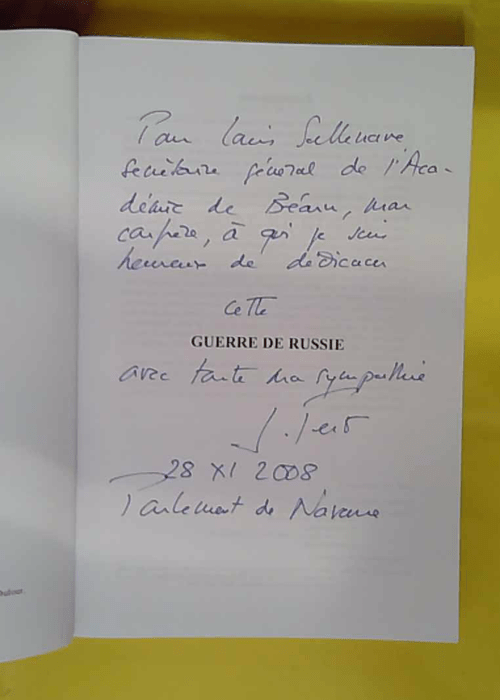 Pour Louis Sallenave,
Secrétaire général de l'Aca-
démie de Béarn, mon
confrère, à qui je suis
heureux de dédicacer
cette
GUERRE DE RUSSIE
avec toute ma sympathie
28 XI 2008
Parlement de Navarre